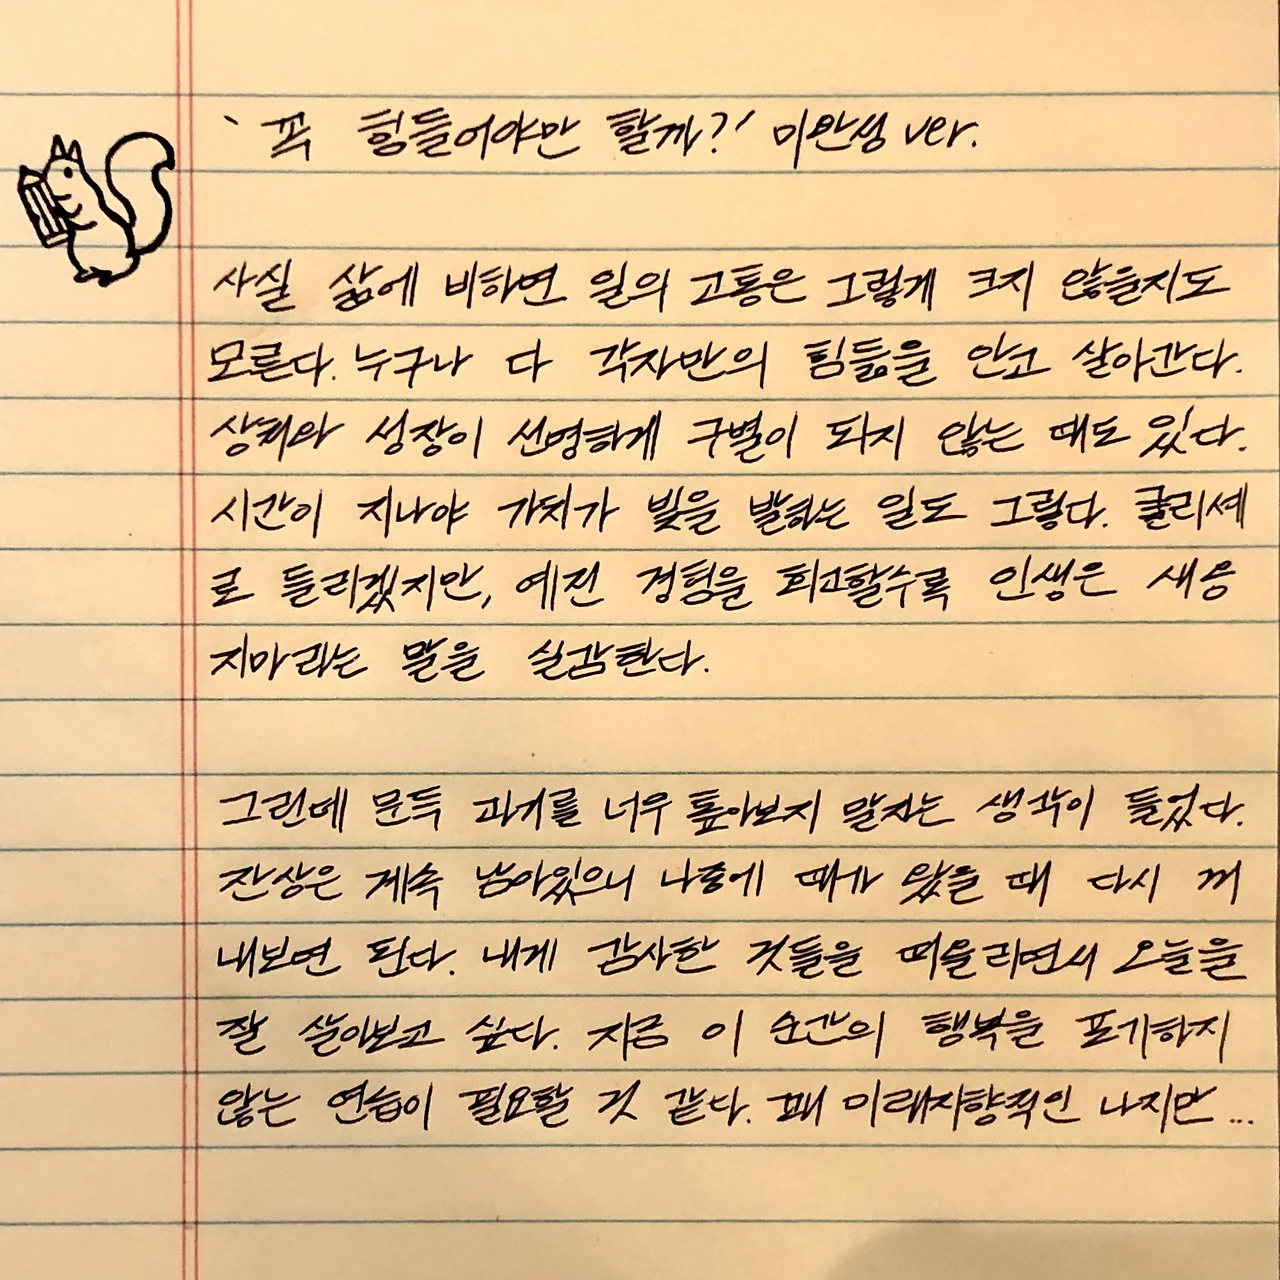 '꼭 힘들어야만 할까?' 미완성 ver.
사실 삶에 비하면 일의 고통은 그렇게 크지 않을지도
모른다. 누구나 다 각자만의 힘듦을 안고 살아간다.
상처와 성장이 선명하게 구별이 되지 않는 때도 있다.
시간이 지나야 가치가 빛을 발하는 일도 그렇다. 클리셰
로 들리겠지만, 예전 경험을 회고할수록 인생은 새옹
지마라는 말을 실감한다.
그런데 문득 과거를 너무 톺아보지 말자는 생각이 들었다.
잔상은 계속 남아있으니 나중에 때가 왔을 때 다시 꺼
내보면 된다. 내게 감사한 것들을 떠올리면서 오늘을
잘 살아보고 싶다. 지금 이 순간의 행복을 포기하지
않는 연습이 필요할 것 같다. 꽤 미래지향적인 나지만...